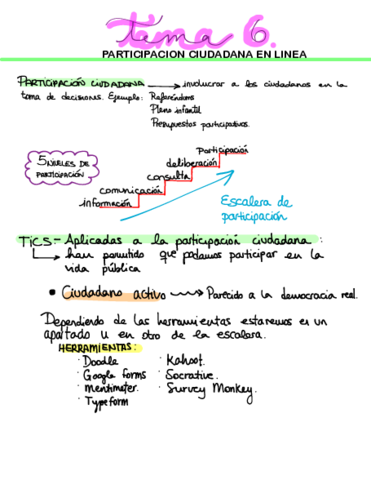 tema 6.
PARTICIPACION CIUDADANA EN LINEA
PARTICIPACIÓN CIUDADANA → involucrar a los ciudadanos en la
toma de decisiones. Ejemplo: Referéndums
Pleno infantil
Presupuestos participativos.
5 NIVELES DE
PARTICIPACIÓN
Participación
deliberación
consulta
comunicación
información
Escalera de
participación
TiCS - Aplicadas a la participación ciudadana :
↳ han permitido que podamos participar en la
vida pública
• Ciudadano activo → Parecido a la democracia real.
Dependiendo de las herramientas estaremos en un
apartado u en otro de la escalera.
HERRAMIENTAS:
· Doodle
· Google forms
· Mentimeter.
· Typeform
· Kahoot.
· Socrative.
· Survey Monkey.